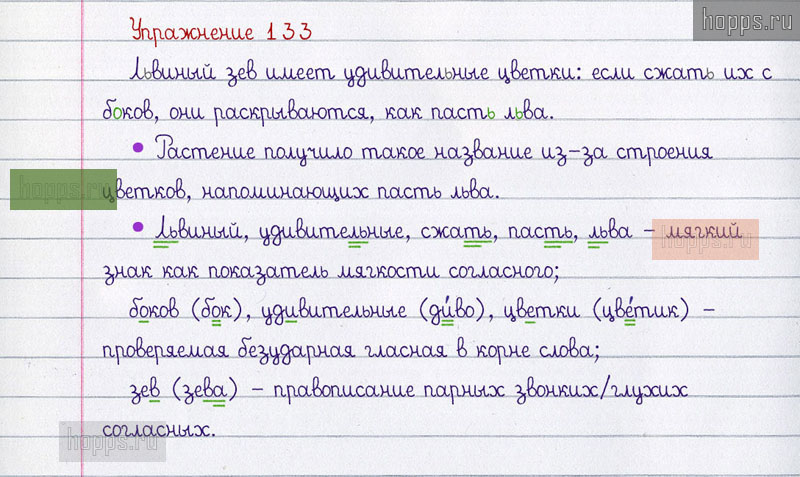 hopps.ru
Упражнение 133
Львиный зев имеет удивительные цветки: если сжать их с
боков, они раскрываются, как пасть льва.
• Растение получило такое название из-за строения
hopps.ru
цветков, напоминающих пасть льва.
• Львиный, удивительные, сжать, пасть, льва – мягкий
hopps.ru
знак как показатель мягкости согласного;
боков (бок), удивительные (ди́во), цветки (цве́тик) –
проверяемая безударная гласная в корне слова;
зев (зева) – правописание парных звонких/глухих
согласных.
hopps.ru